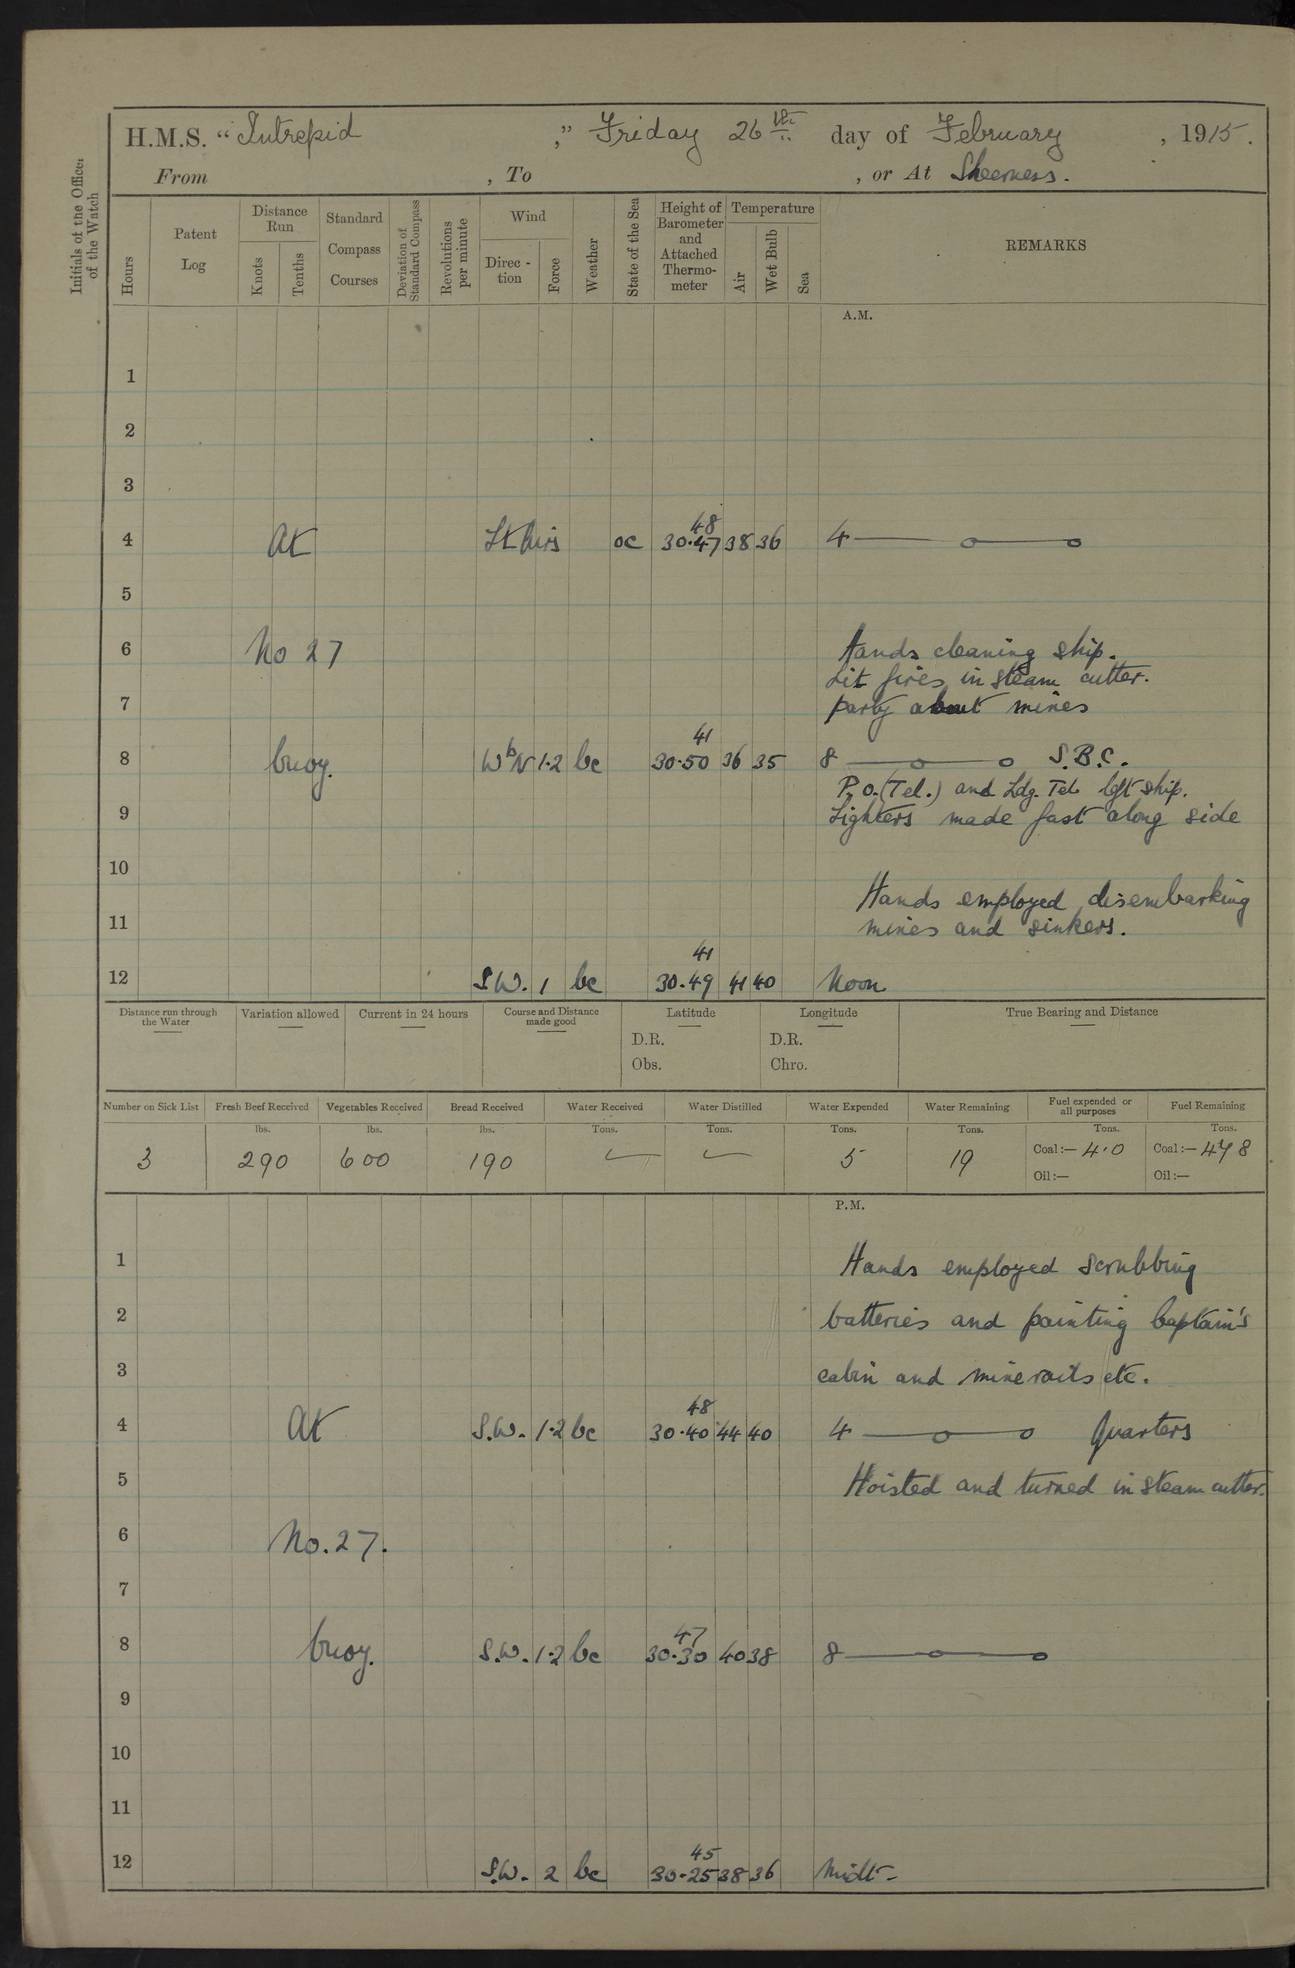 H.M.S. “ Intrepid , ” Friday 26th day of February , 1915.
From , To , or At Sheerness.
Initials of the Officer of the Watch
Hours
Patent Log
Distance Run
Knots
Tenths
Standard Compass Courses
Deviation of Standard Compass
Revolutions per minute
Wind
Direc-tion
Force
Weather
State of the Sea
Height of Barometer and Attached Thermo-meter
Temperature
Air
Wet Bulb
Sea
REMARKS
A.M.
1
2
3
48
4 At Lt Airs oc 30.47 38 36 4
5
6 No 27 Hands cleaning ship.
Lit fires in steam cutter.
7 party about mines
41
8 buoy. WbN 1.2 bc 30.50 36 35 8 S.B.C.
P.O. (Tel.) and Ldg. Tel left ship.
9 Lighters made fast along side
10
Hands employed disembarking
11 mines and sinkers.
41
12 S.W. 1 bc 30.49 41 40 Noon
Distance run through the Water
Variation allowed
Current in 24 hours
Course and Distance made good
Latitude
D.R.
Obs.
Longitude
D.R.
Chro.
True Bearing and Distance
Number on Sick List Fresh Beef Received Vegetables Received Bread Received Water Received Water Distilled Water Expended Water Remaining Fuel expended or all purposes Fuel Remaining
lbs. lbs. lbs. Tons. Tons. Tons. Tons. Tons. Tons.
3 290 600 190 5 19 Coal:— 4.0 Coal:— 478
Oil:— Oil:—
P.M.
1 Hands employed scrubbing
2 batteries and painting Captain's
3 cabin and mine rails etc.
48
4 At S.W. 1.2 bc 30.40 44 40 4 Quarters
5 Hoisted and turned in steam cutter.
6 No. 27.
7
47
8 buoy. S.W. 1.2 bc 30.30 40 38 8
9
10
11
45
12 S.W. 2 bc 30.25 38 36 Midt-